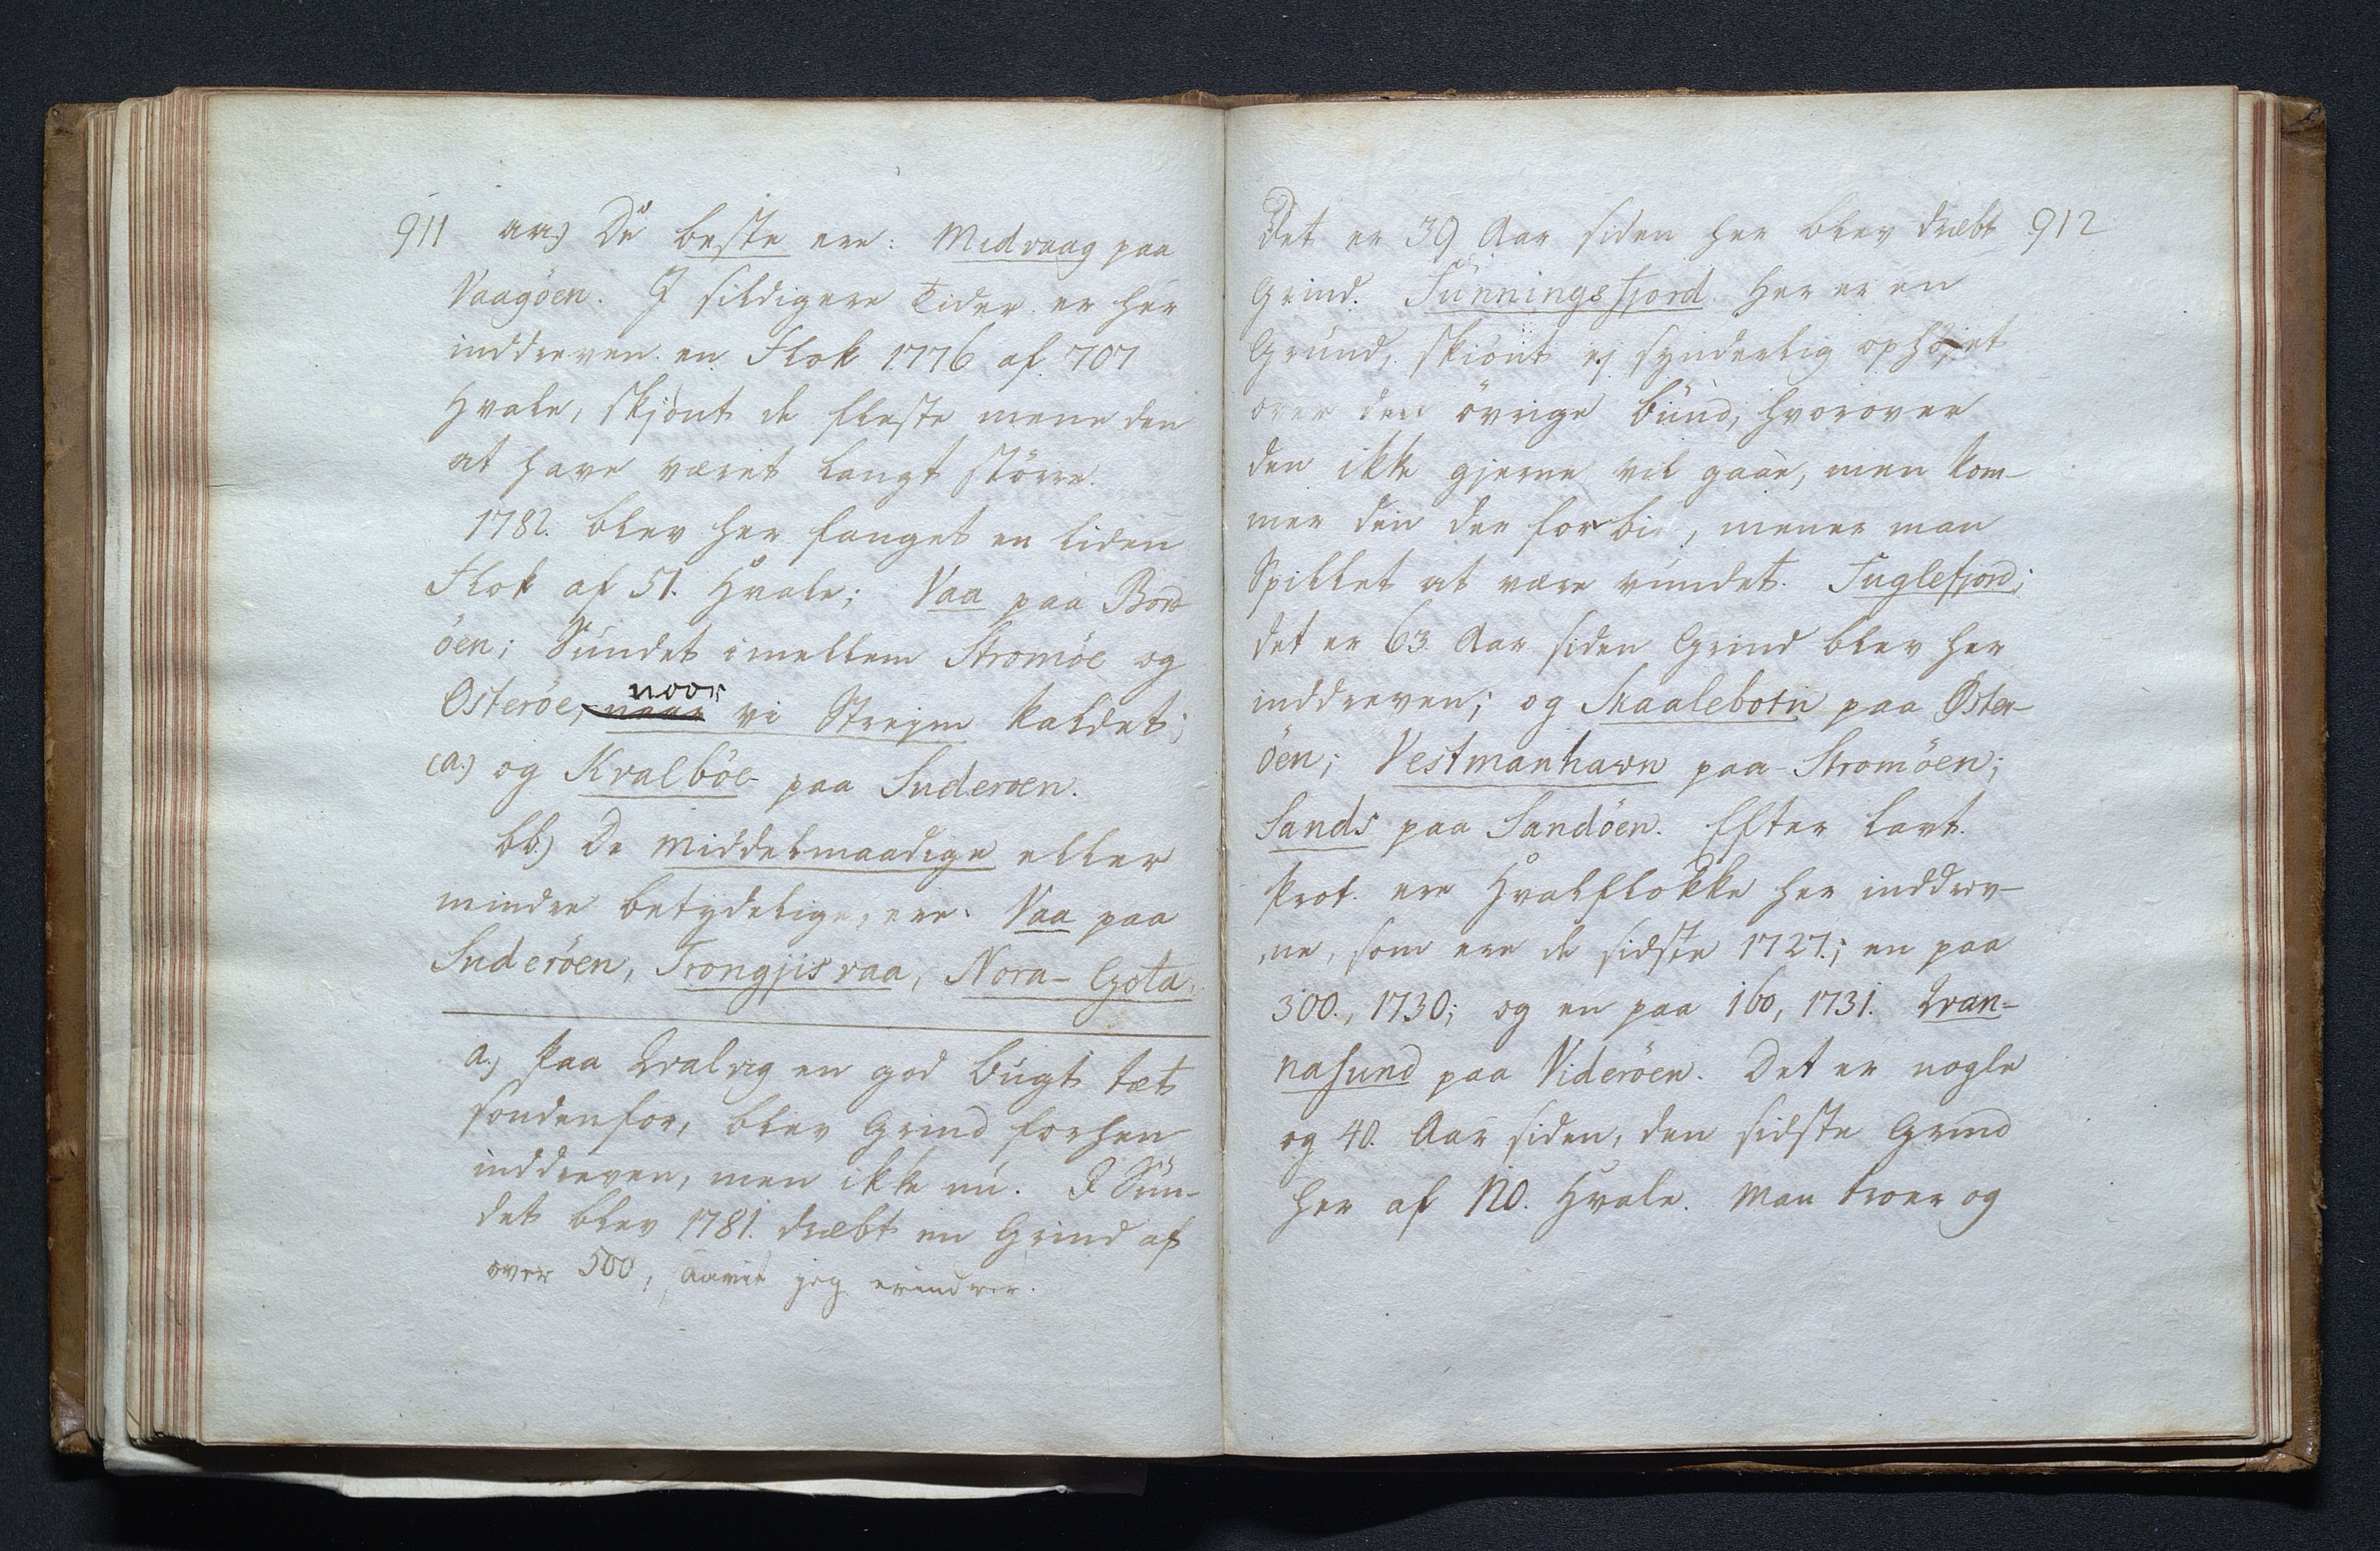 911 aa) De beste ere: Midvaag paa
Vaagöen. I sildigere Tider er her
inddreven en Flok 1776 af 707
Hvale, skjönt de fleste mene den
at have været langt större.
1782. blev her fanget en liden
Flok af 51. Hvale; Vaa paa Bord
öen; Sundet imellem Stromöe og
Osteröe, noor vi Strejm kaldet;
(a.) og Kvalböe paa Suderoen.
bb) De middelmaadige eller
mindre betydelige, ere: Vaa paa
Suderöen, Trongjisvaa, Nora-Gota,
a.) Paa Qvalvig en god Bugt tæt
søndenfor, blev Grind forhen
inddreven, men ikke nu. I Sun-
det blev 1781. dræbt en Grind af
over 500, saavit jeg erindrer.
Det er 39 Aar siden her blev dræbt 912
Grind. Funningsfjord. Her er en
Grund, skiönt ej synderlig ophöjet
over den övrige Bund, hvorover
den ikke gjerne vil gaae, men kom-
mer den der forbi, mener man
Spillet at være vundet. Fuglefjord;
det er 63 Aar siden Grind blev her
inddreven; og Skaalebotn paa Öster-
öen; Vestmanhavn paa Stromöen;
Sands paa Sandöen. Efter Lavt.
Prot. ere Hvalflokke her inddrev-
ne, som ere de sidste 1727.; en paa
300., 1730; og en paa 160, 1731. Qvan-
nasund paa Videröen. Det er nogle
og 40. Aar siden, den sidste Grind
her af 120. Hvale. Man troer og